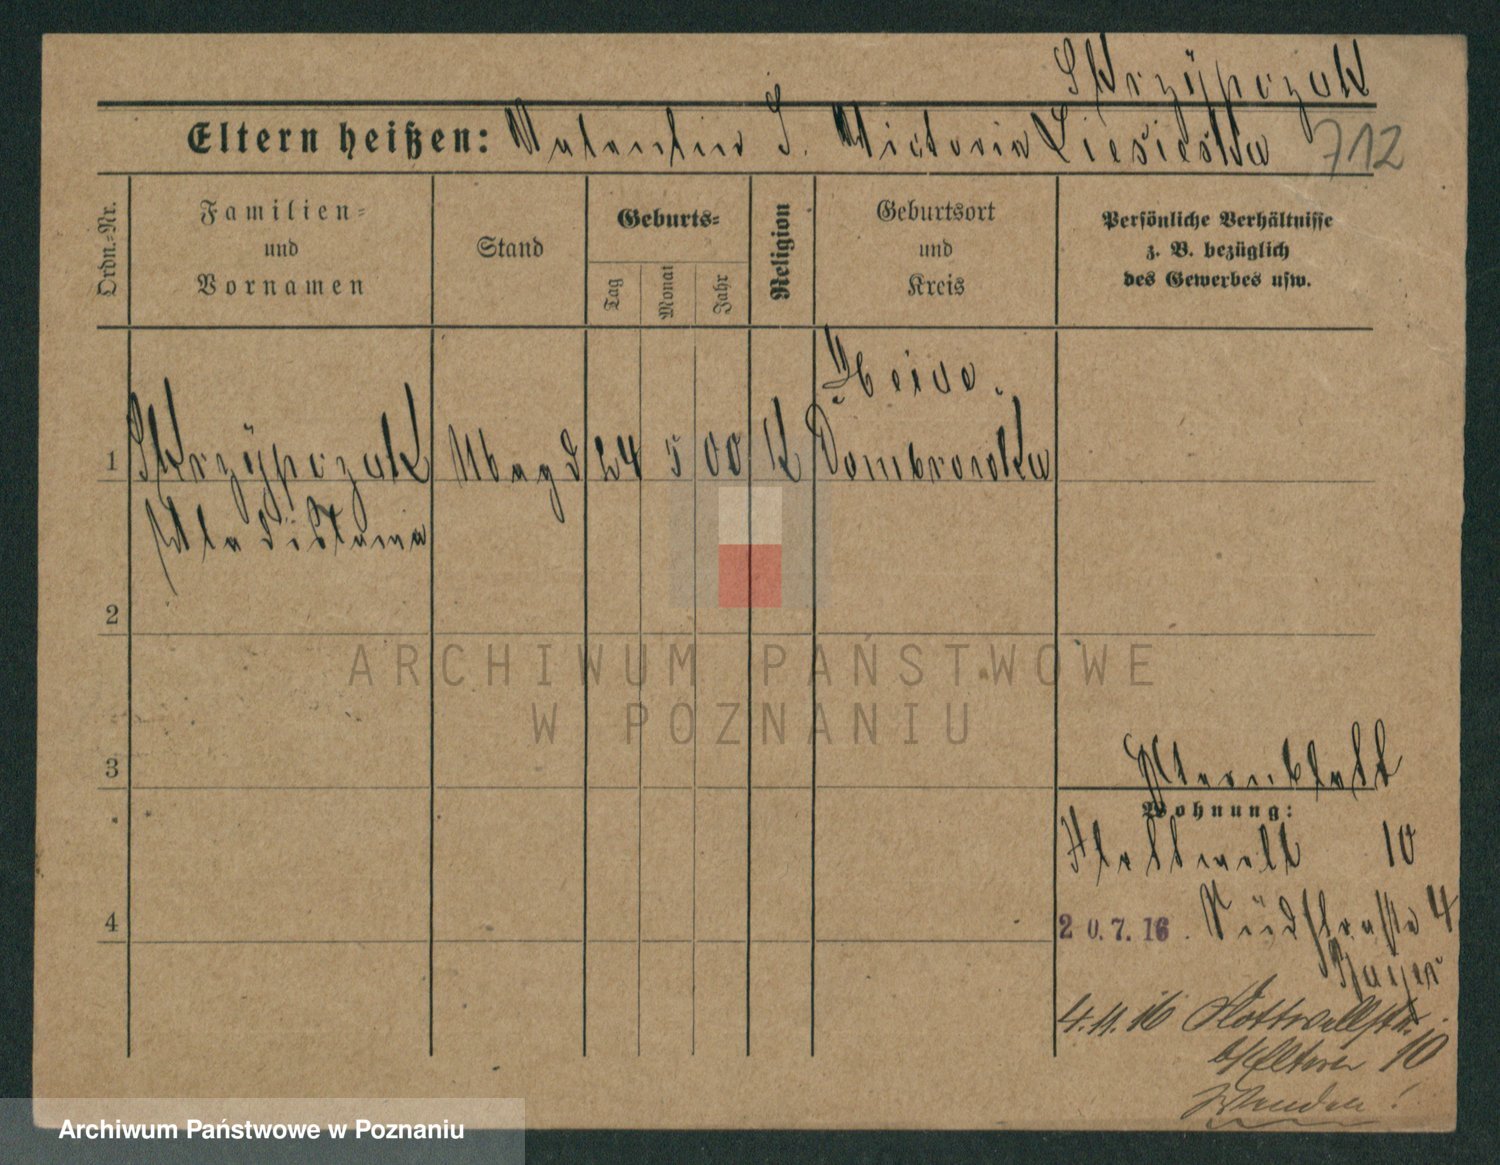 Skrzÿpczak
Eltern heißen: Valentin S. Victoria Liesieska 712
Ordn.-Nr.
Familien-
und
Vornamen
Stand
Geburts-
Tag
Monat
Jahr
Religion
Geburtsort
und
Kreis
Persönliche Verhältnisse
z. B. bezüglich
des Gewerbes usw.
1 Skrzÿpczak Magd 24 5 00 K Dombrowka
Wladislawa
2
ARCHIWUM PAŃSTWOWE
W POZNANIU
3
Wohnung:
Flottwell 10
4
20.7.16. Südstraße 4
Bayer
4.11.16 Flottwellstr.
b/Eltern 10
Wenden!
Archiwum Państwowe w Poznaniu